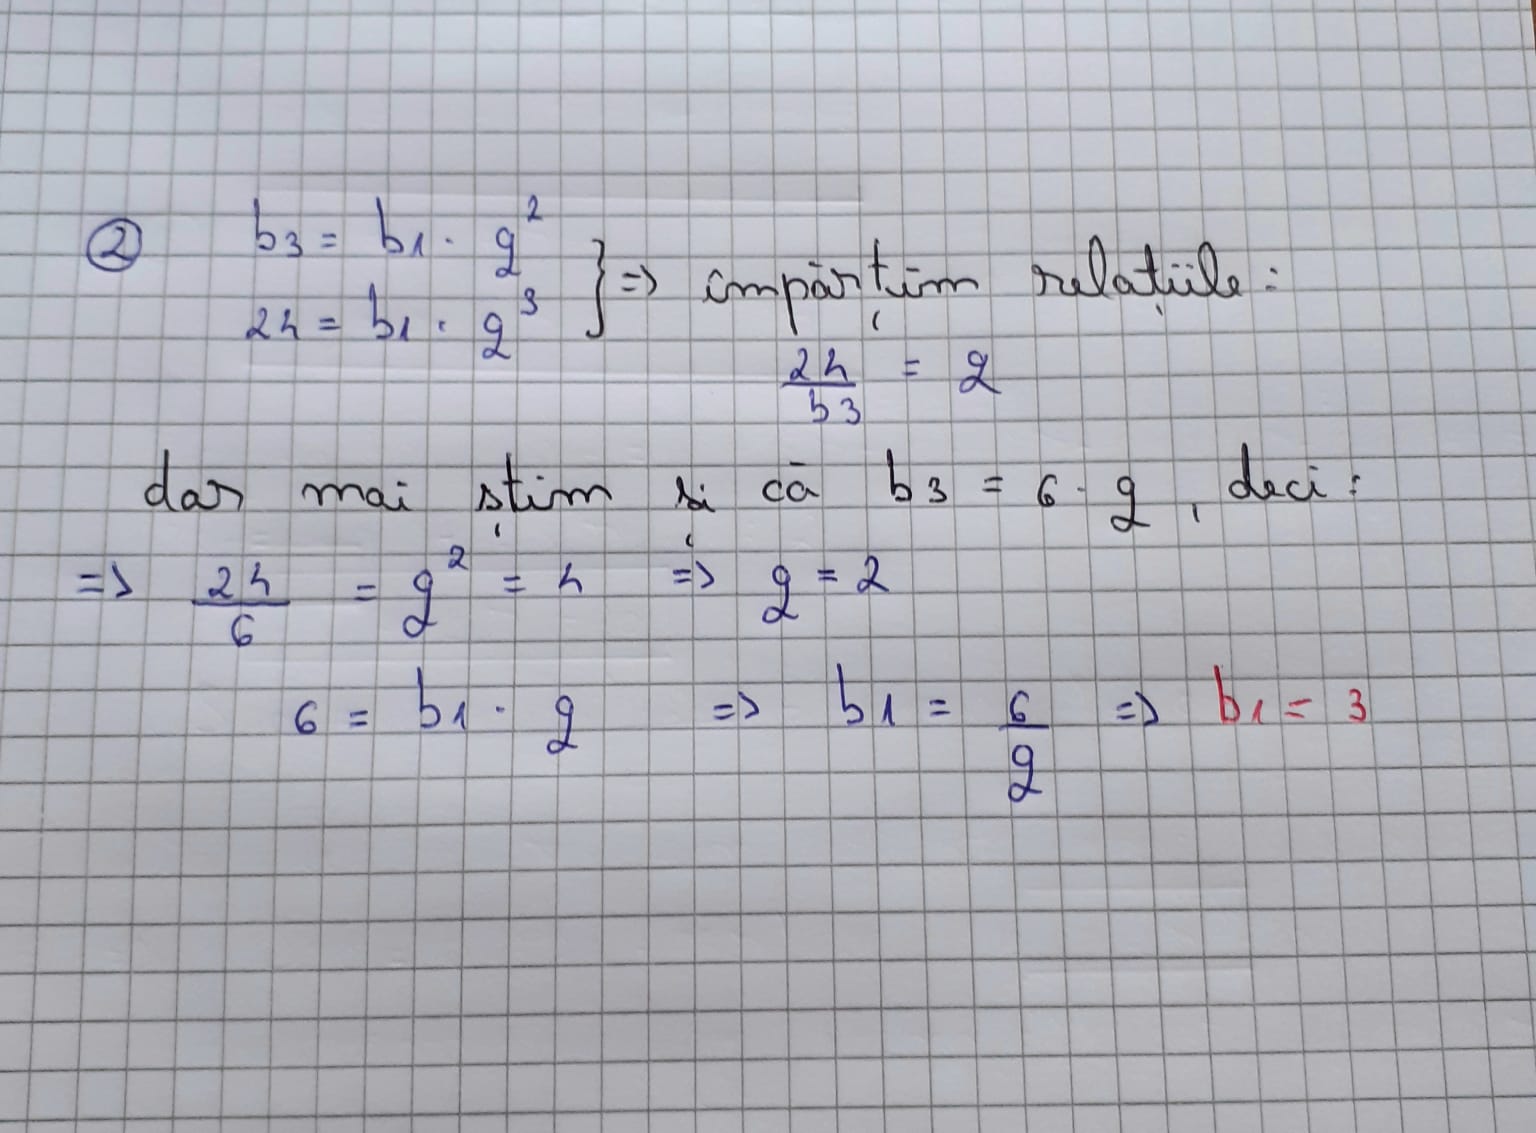 ② b3 = b1 · q²
24 = b1 · q³ } => împărțim relațiile:
24/b3 = q
dar mai știm și că b3 = 6 · q, deci:
=> 24/6 = q² = 4 => q = 2
6 = b1 · q => b1 = 6/q => b1 = 3